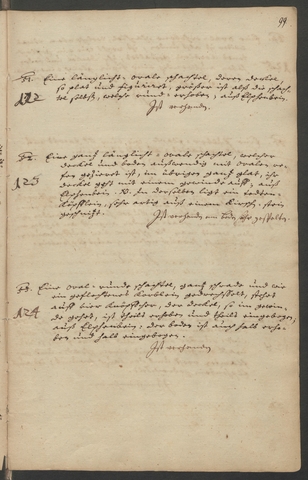 99
51. Eine länglicht-ovale schachtel, deren deckel,
so plat und figuriret, größer ist alß die schach-
tel selbst, welche rund-erhoben, auß Elphenbein.
122
Ist vorhanden.
52. Eine ganz länglicht-ovale schachtel, welcher
deckel und boden außwendig mit ovalen rei-
fen gezieret ist, im übrigen ganz glat, ihr
123
deckel geht mit einem gewinde auff, auß
Elphenbein. N. In derselben ligt ein todten-
köpfflein, sehr artig auß einem kirsch-stein
geschnizt.
Ist vorhanden
53. Eine oval-runde schachtel, ganz schrade und wie
ein geflochtenes körblein gedrechselt, stehet
124
auff vier knöpffchen, der deckel, so im gewin-
de gehet, ist theils erhoben und theils eingebogen,
auß Elphenbein, der boden ist auch halb erho-
ben und halb eingebogen.
Ist vorhanden